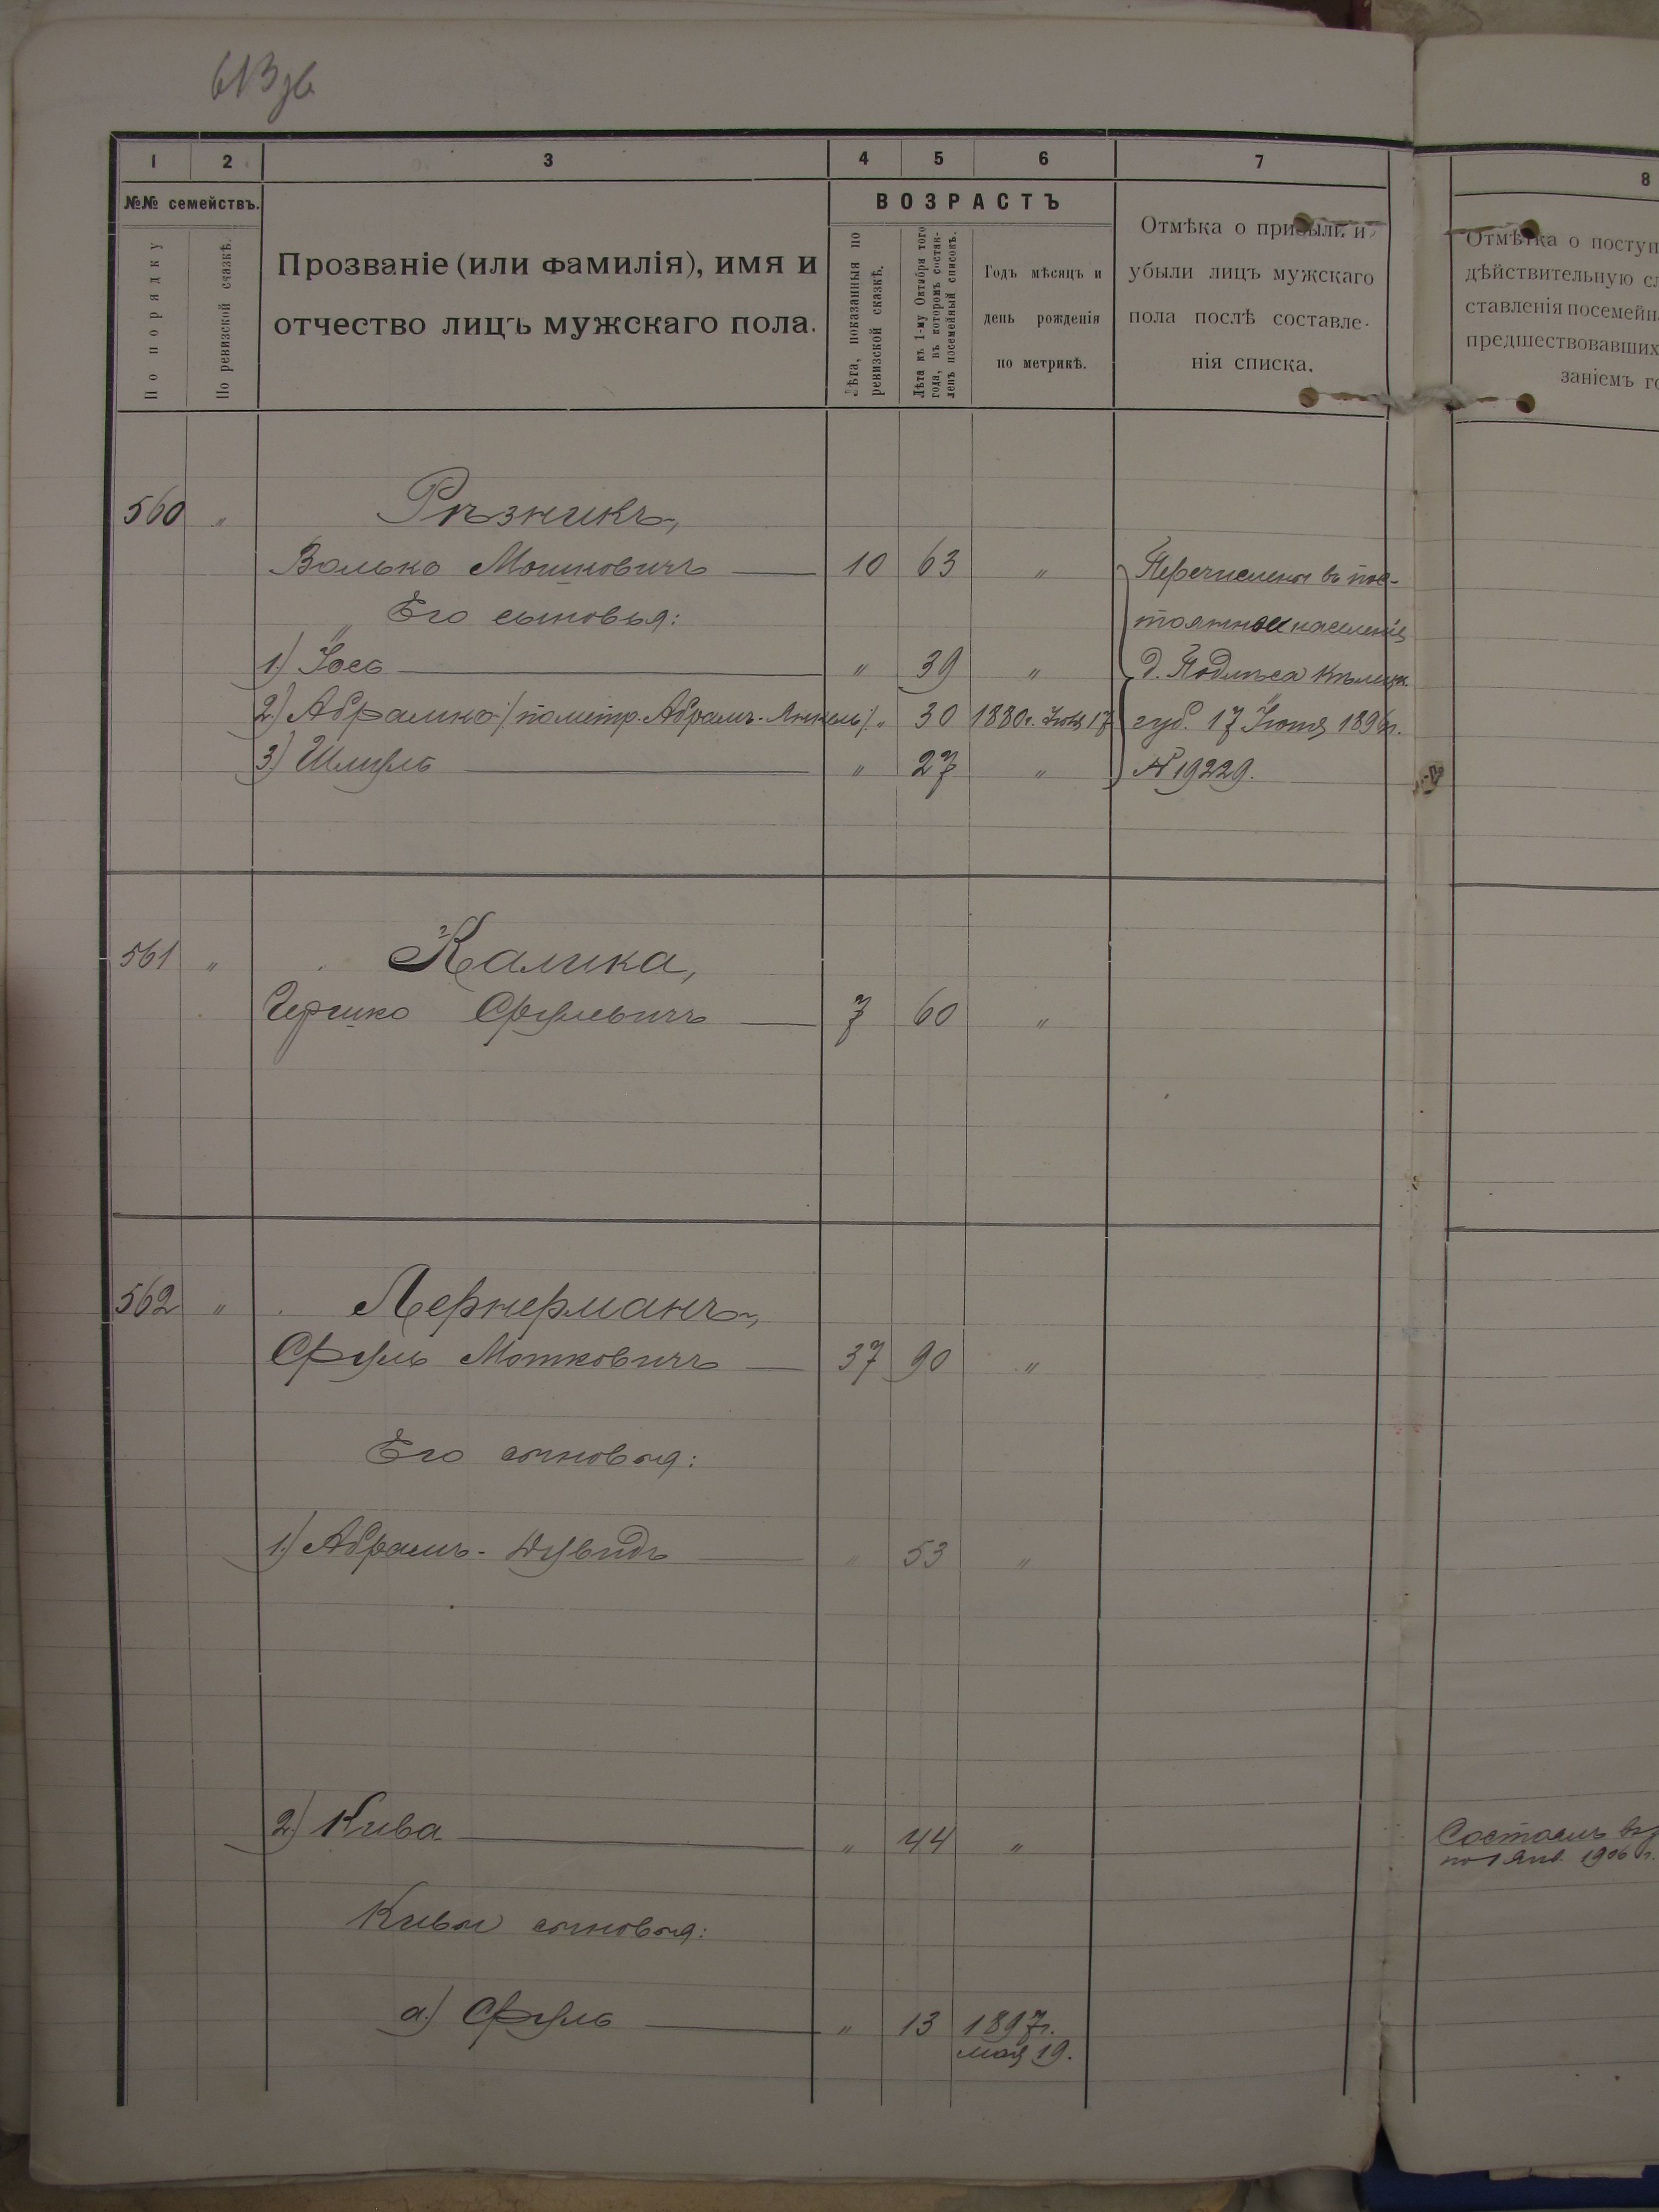 613 зв
1 2 3 4 5 6 7 8
№№ семействъ.
По порядку
По ревизской сказкѣ.
Прозваніе (или фамилія), имя и
отчество лицъ мужскаго пола.
ВОЗРАСТЪ
Лѣта, показанныя по
ревизской сказкѣ.
Лѣта къ 1-му Октября того
года, въ которомъ состав-
ленъ посемейный списокъ.
Годъ мѣсяцъ и
день рожденія
по метрикѣ.
Отмѣка о прибыли и
убыли лицъ мужскаго
пола послѣ составле-
нія списка.
Отмѣтка о поступ
дѣйствительную сл
ставленія посемейн
предшествовавших
заніемъ го
560 " Рѣзникъ,
Волько Мошковичъ — 10 63 " Перечислены въ пос-
Его сыновья: тоянное населеніе
1.) Іось — " 39 " д. Подлѣса Кѣлецк.
2.) Абрамко /: по метр. Абрамъ-Янкель :/ " 30 1880 г. Іюля 17 губ. 17 Іюня 1896 г.
3.) Шмуль — " 27 " № 19229.
561 " Калика,
Гершко Срулевичъ — 7 60 "
562 " Лернерманъ,
Сруль Мошковичъ — 37 90 "
Его сыновья:
1.) Абрамъ-Дувидъ — " 53 "
2.) Кива — " 44 " Состоялъ въ
по 1 Янв. 1906 г.
Кивы сыновья:
а.) Сруль — " 13 1897 г.
мая 19.